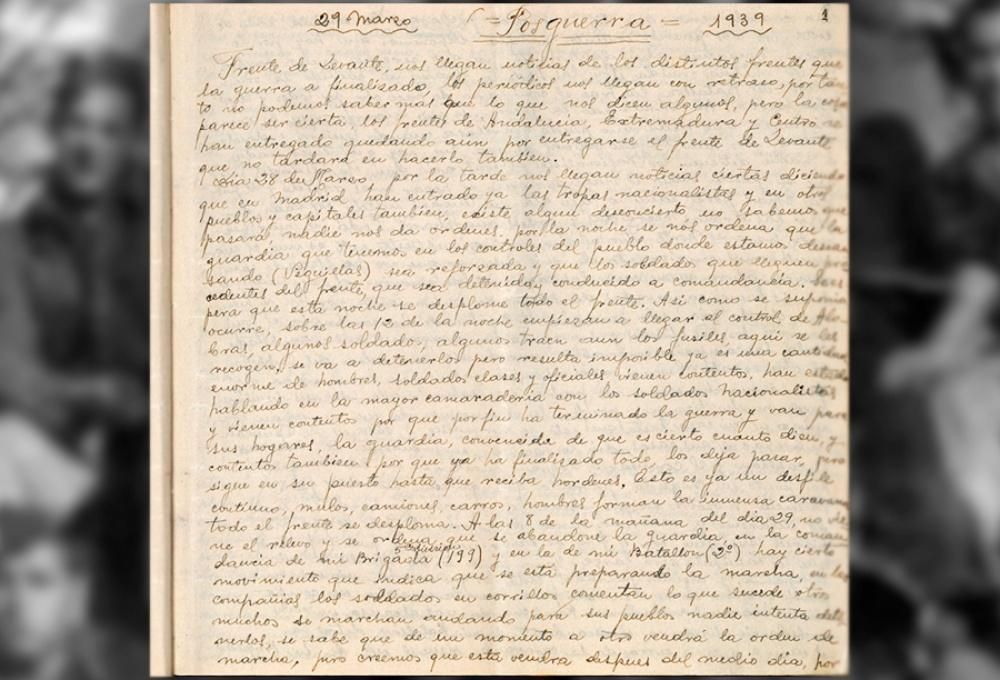 29 Marzo (= Posguerra = 1939 1
Frente de Levante, nos llegan noticias de los distintos frentes que
la guerra a finalizado, los periodicos nos llegan con retraso, por tan
to no podemos saber mas que lo que nos dicen algunos, pero la cosa
parece ser cierta, los frente de Andalucia, Extremadura y Centro se
han entregado quedando aún por entregarse el frente de Levante
que no tardará en hacerlo tambien.
Dia 28 de Marzo por la tarde nos llegan noticias ciertas diciendo
que en Madrid han entrado ya las tropas nacionalistas y en otros
pueblos y capitales tambien, existe algun desconcierto no sabemos que
pasará nadie nos da ordenes. por la noche se nos ordena que la
guardia que tenemos en los controles del pueblo donde estamos descan
sando (Viquielas) sea reforzada y que los soldados que lleguen pro
cedentes del frente, que sea detenidos y conducido a comandancia. Se es
pera que esta noche se desplome todo el frente. Asi como se suponia
ocurre, sobre las 12 de la noche empiezan a llegar el control de
algunos soldado, algunos traen aun los fusiles, aqui se les
recogen, se va a detenerlos pero resulta imposible ya es una cantidad
enorme de hombres, soldados clases y oficiales vienen contentos, han estado
hablando en la mayor camaraderia con los soldados nacionalistas
y vienen contentos por que por fin ha terminado la guerra y van para
sus hogares, la guardia, convencida de que es cierto cuanto dicen, y
contentos tambien por que ya ha finalizado todo, los deja pasar, pero
sigue en su puesto hasta que reciba hordenes. Esto es ya un desfile
continuo, mulos, camiones, carros, hombres forman la inmensa caravana
todo el frente se desploma. A las 8 de la mañana del dia 29, no vie
ne el relevo y se ordena que se abandone la guardia, en la coman
dancia de mi Brigada (199) y en la de mi Batallon (2º) hay cierto
movimiento que indica que se está preparando la marcha, en las
compañias los soldados en corrillos comentan lo que sucede otros
muchos se marchan andando para sus pueblos nadie intenta dete
nerlos, se sabe que de un momento a otro vendrá la orden de
marcha, pero creemos que esta vendra despues del medio dia, por